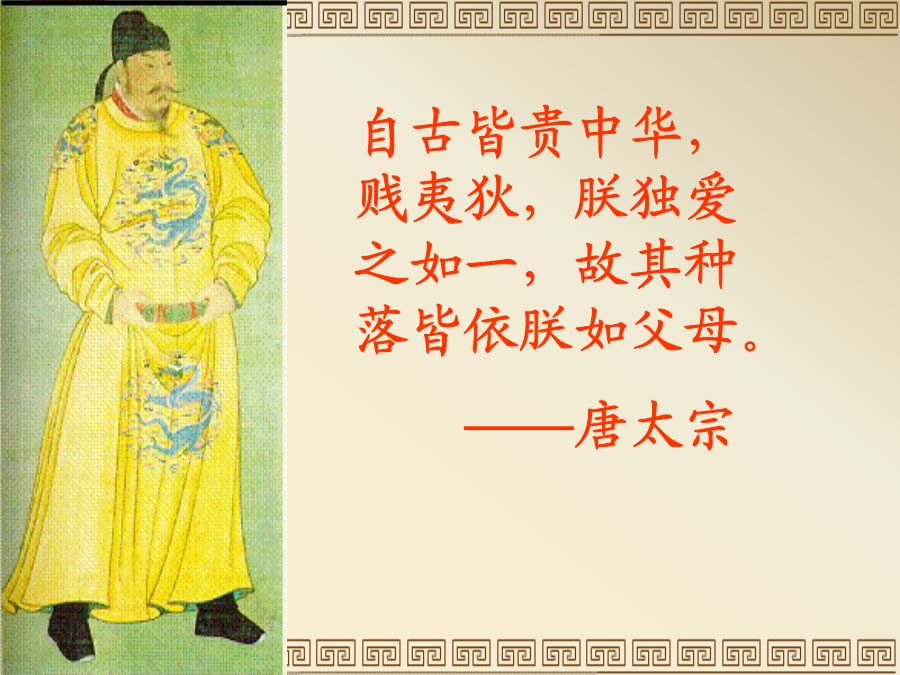 自古皆贵中华，
贱夷狄，朕独爱
之如一，故其种
落皆依朕如父母。
——唐太宗